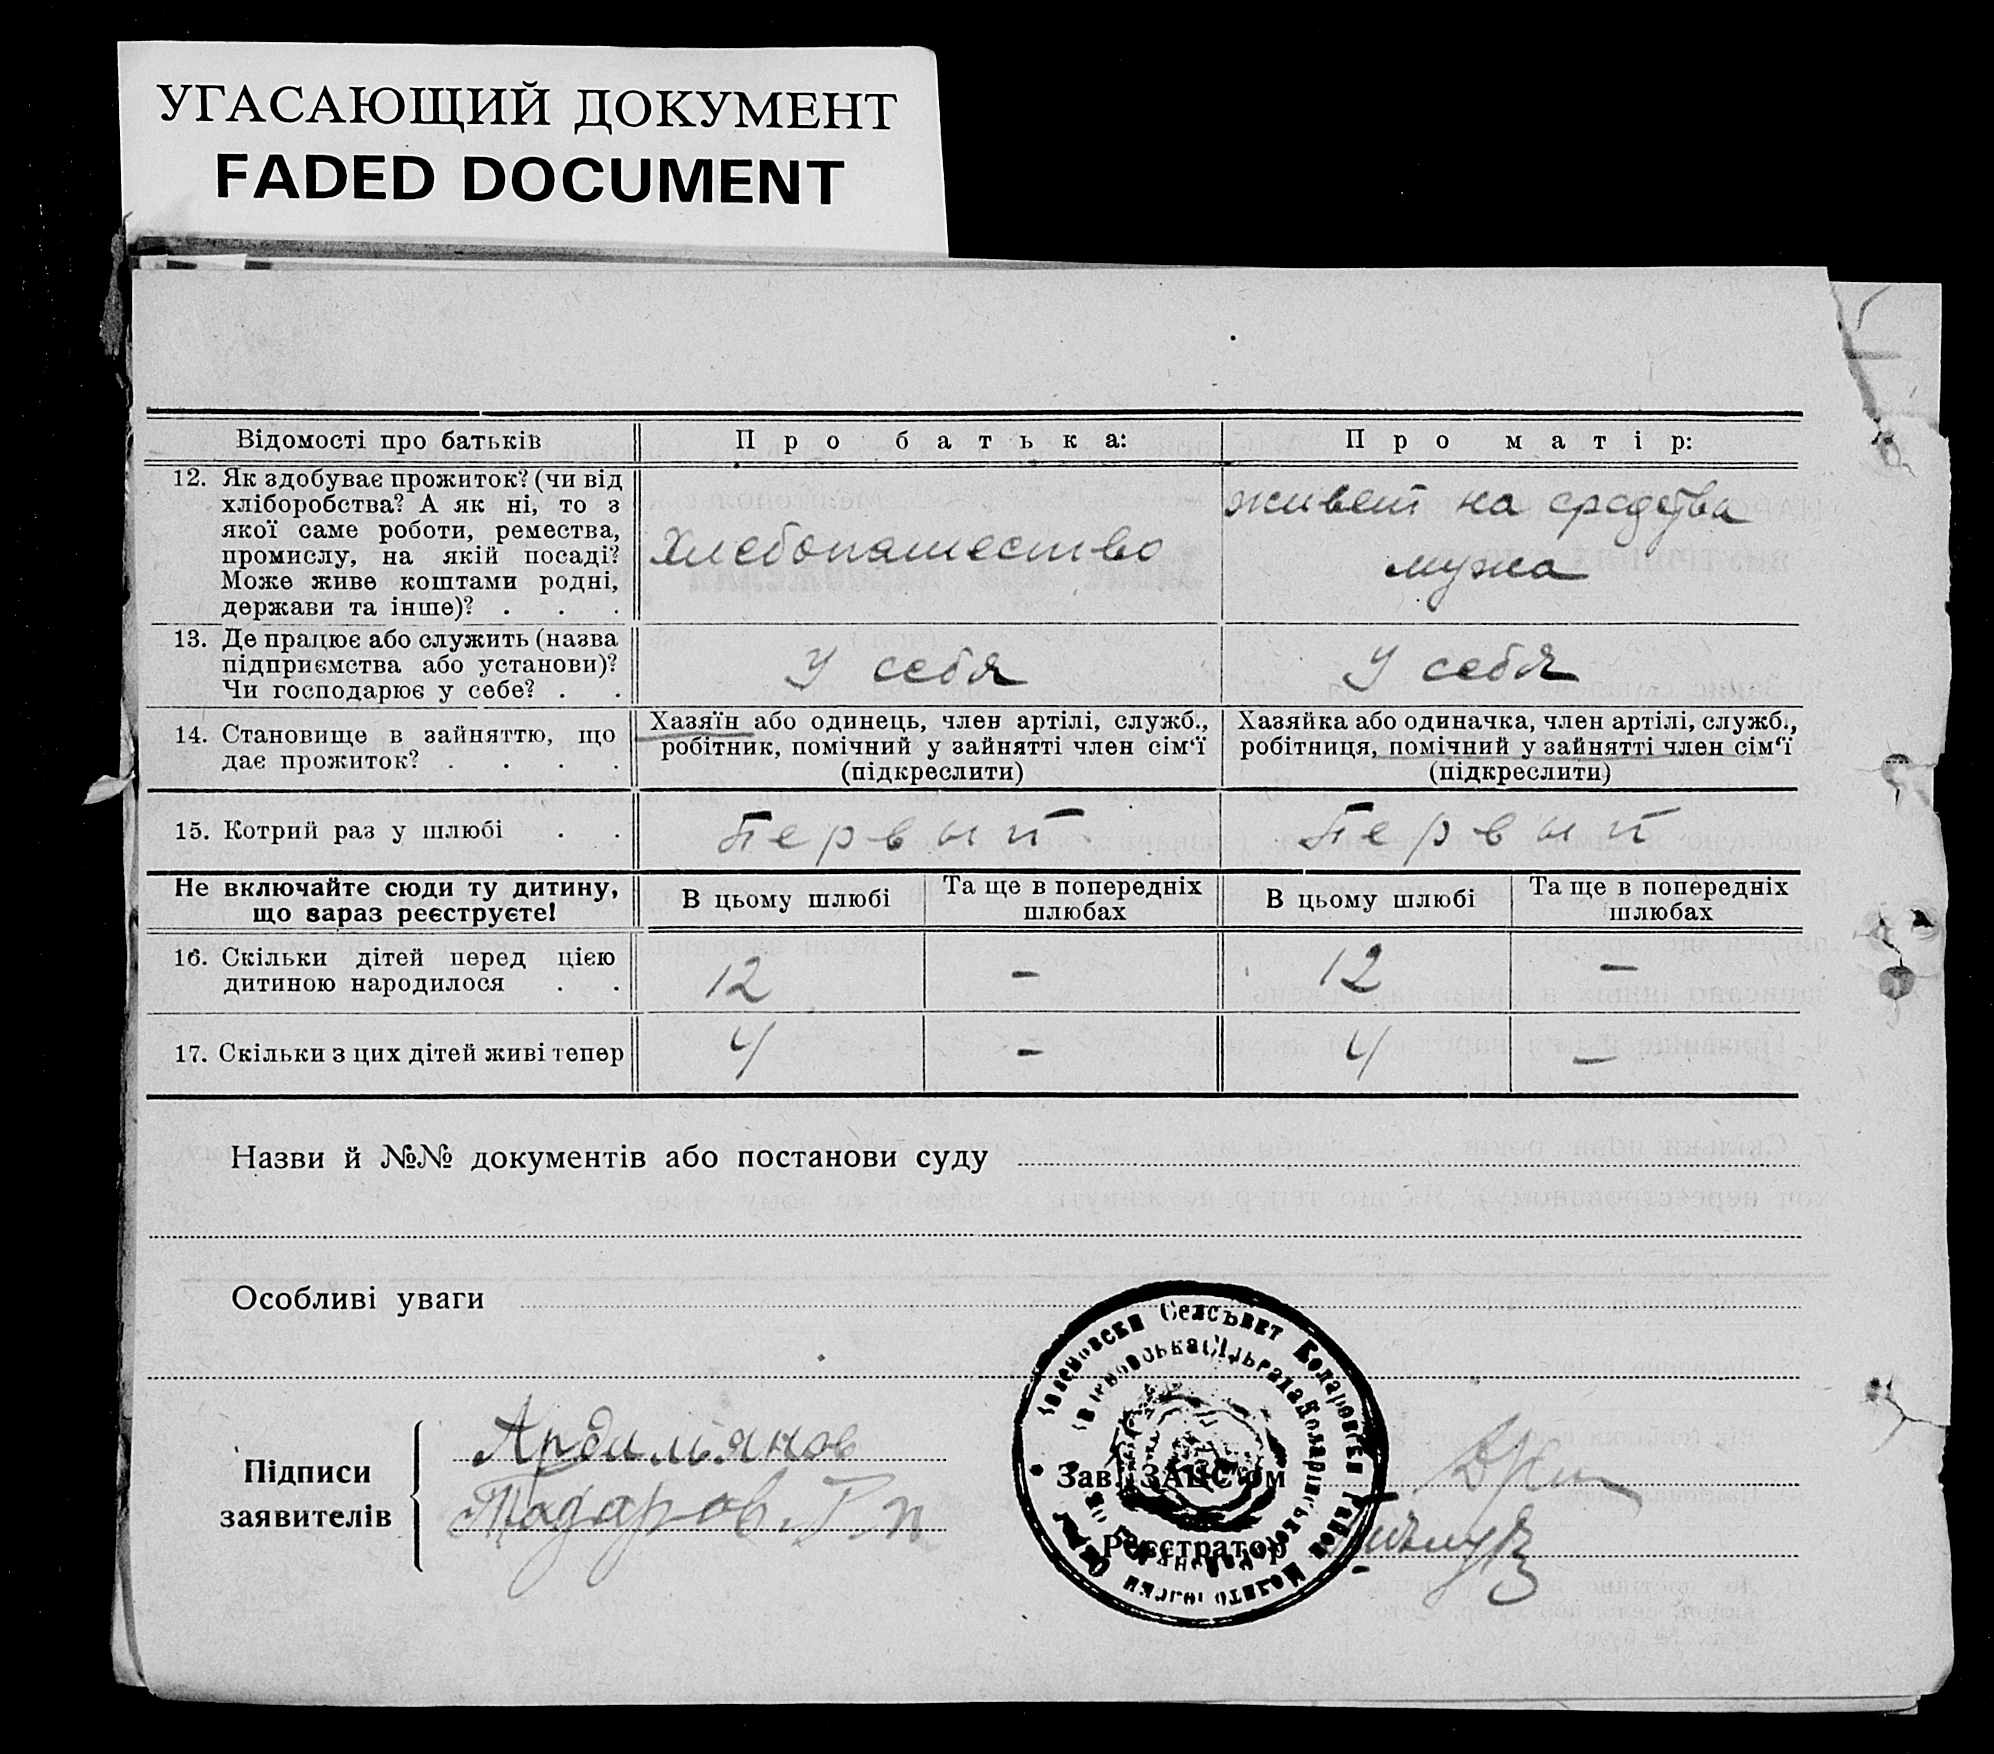 УГАСАЮЩИЙ ДОКУМЕНТ
FADED DOCUMENT
Відомості про батьків
Про батька:
Про матір:
12. Як здобуває прожиток? (чи від
хліборобства? А як ні, то з
якої саме роботи, ремества,
промислу, на якій посаді?
Може живе коштами родні,
держави та інше)? . . .
Хлебопашество
живет на средства
мужа
13. Де працює або служить (назва
підприємства або установи)?
Чи господарює у себе? . .
У себя
У себя
14. Становище в зайняттю, що
дає прожиток? . . . .
Хазяїн або одинець, член артілі, служб.,
робітник, помічний у зайнятті член сім'ї
(підкреслити)
Хазяйка або одиначка, член артілі, служб.,
робітниця, помічний у зайнятті член сім'ї
(підкреслити)
15. Котрий раз у шлюбі . .
Первый
Первый
Не включайте сюди ту дитину,
що зараз реєструєте!
В цьому шлюбі
Та ще в попередніх
шлюбах
В цьому шлюбі
Та ще в попередніх
шлюбах
16. Скільки дітей перед цією
дитиною народилося . .
12
–
12
–
17. Скільки з цих дітей живі тепер
4
–
4
–
Назви й №№ документів або постанови суду
Особливі уваги
Підписи
заявителів
Тодаров
Селсъвит Коларовски Район
Зав. ЗАГС'ом
Реєстратор